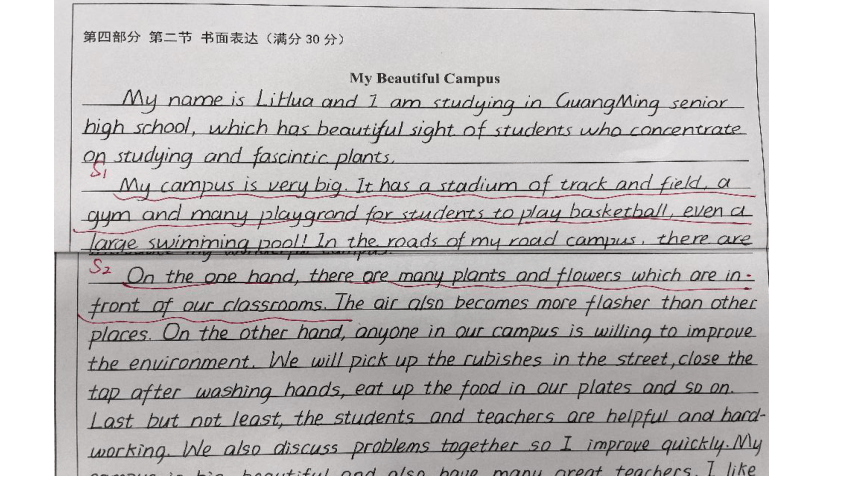 第四部分 第二节 书面表达（满分 30 分）
My Beautiful Campus
My name is LiHua and I am studying in GuangMing senior
high school, which has beautiful sight of students who concentrate
on studying and fascintic plants.
S1
My campus is very big. It has a stadium of track and field, a
gym and many playgrond for students to play basketball, even a
large swimming pool! In the roads of my road campus, there are
S2
On the one hand, there are many plants and flowers which are in
front of our classrooms. The air also becomes more flasher than other
places. On the other hand, anyone in our campus is willing to improve
the environment. We will pick up the rubishes in the street, close the
tap after washing hands, eat up the food in our plates and so on.
Last but not least, the students and teachers are helpful and hard-
working. We also discuss problems together so I improve quickly. My
campus is big, beautiful and also have many great teachers. I like